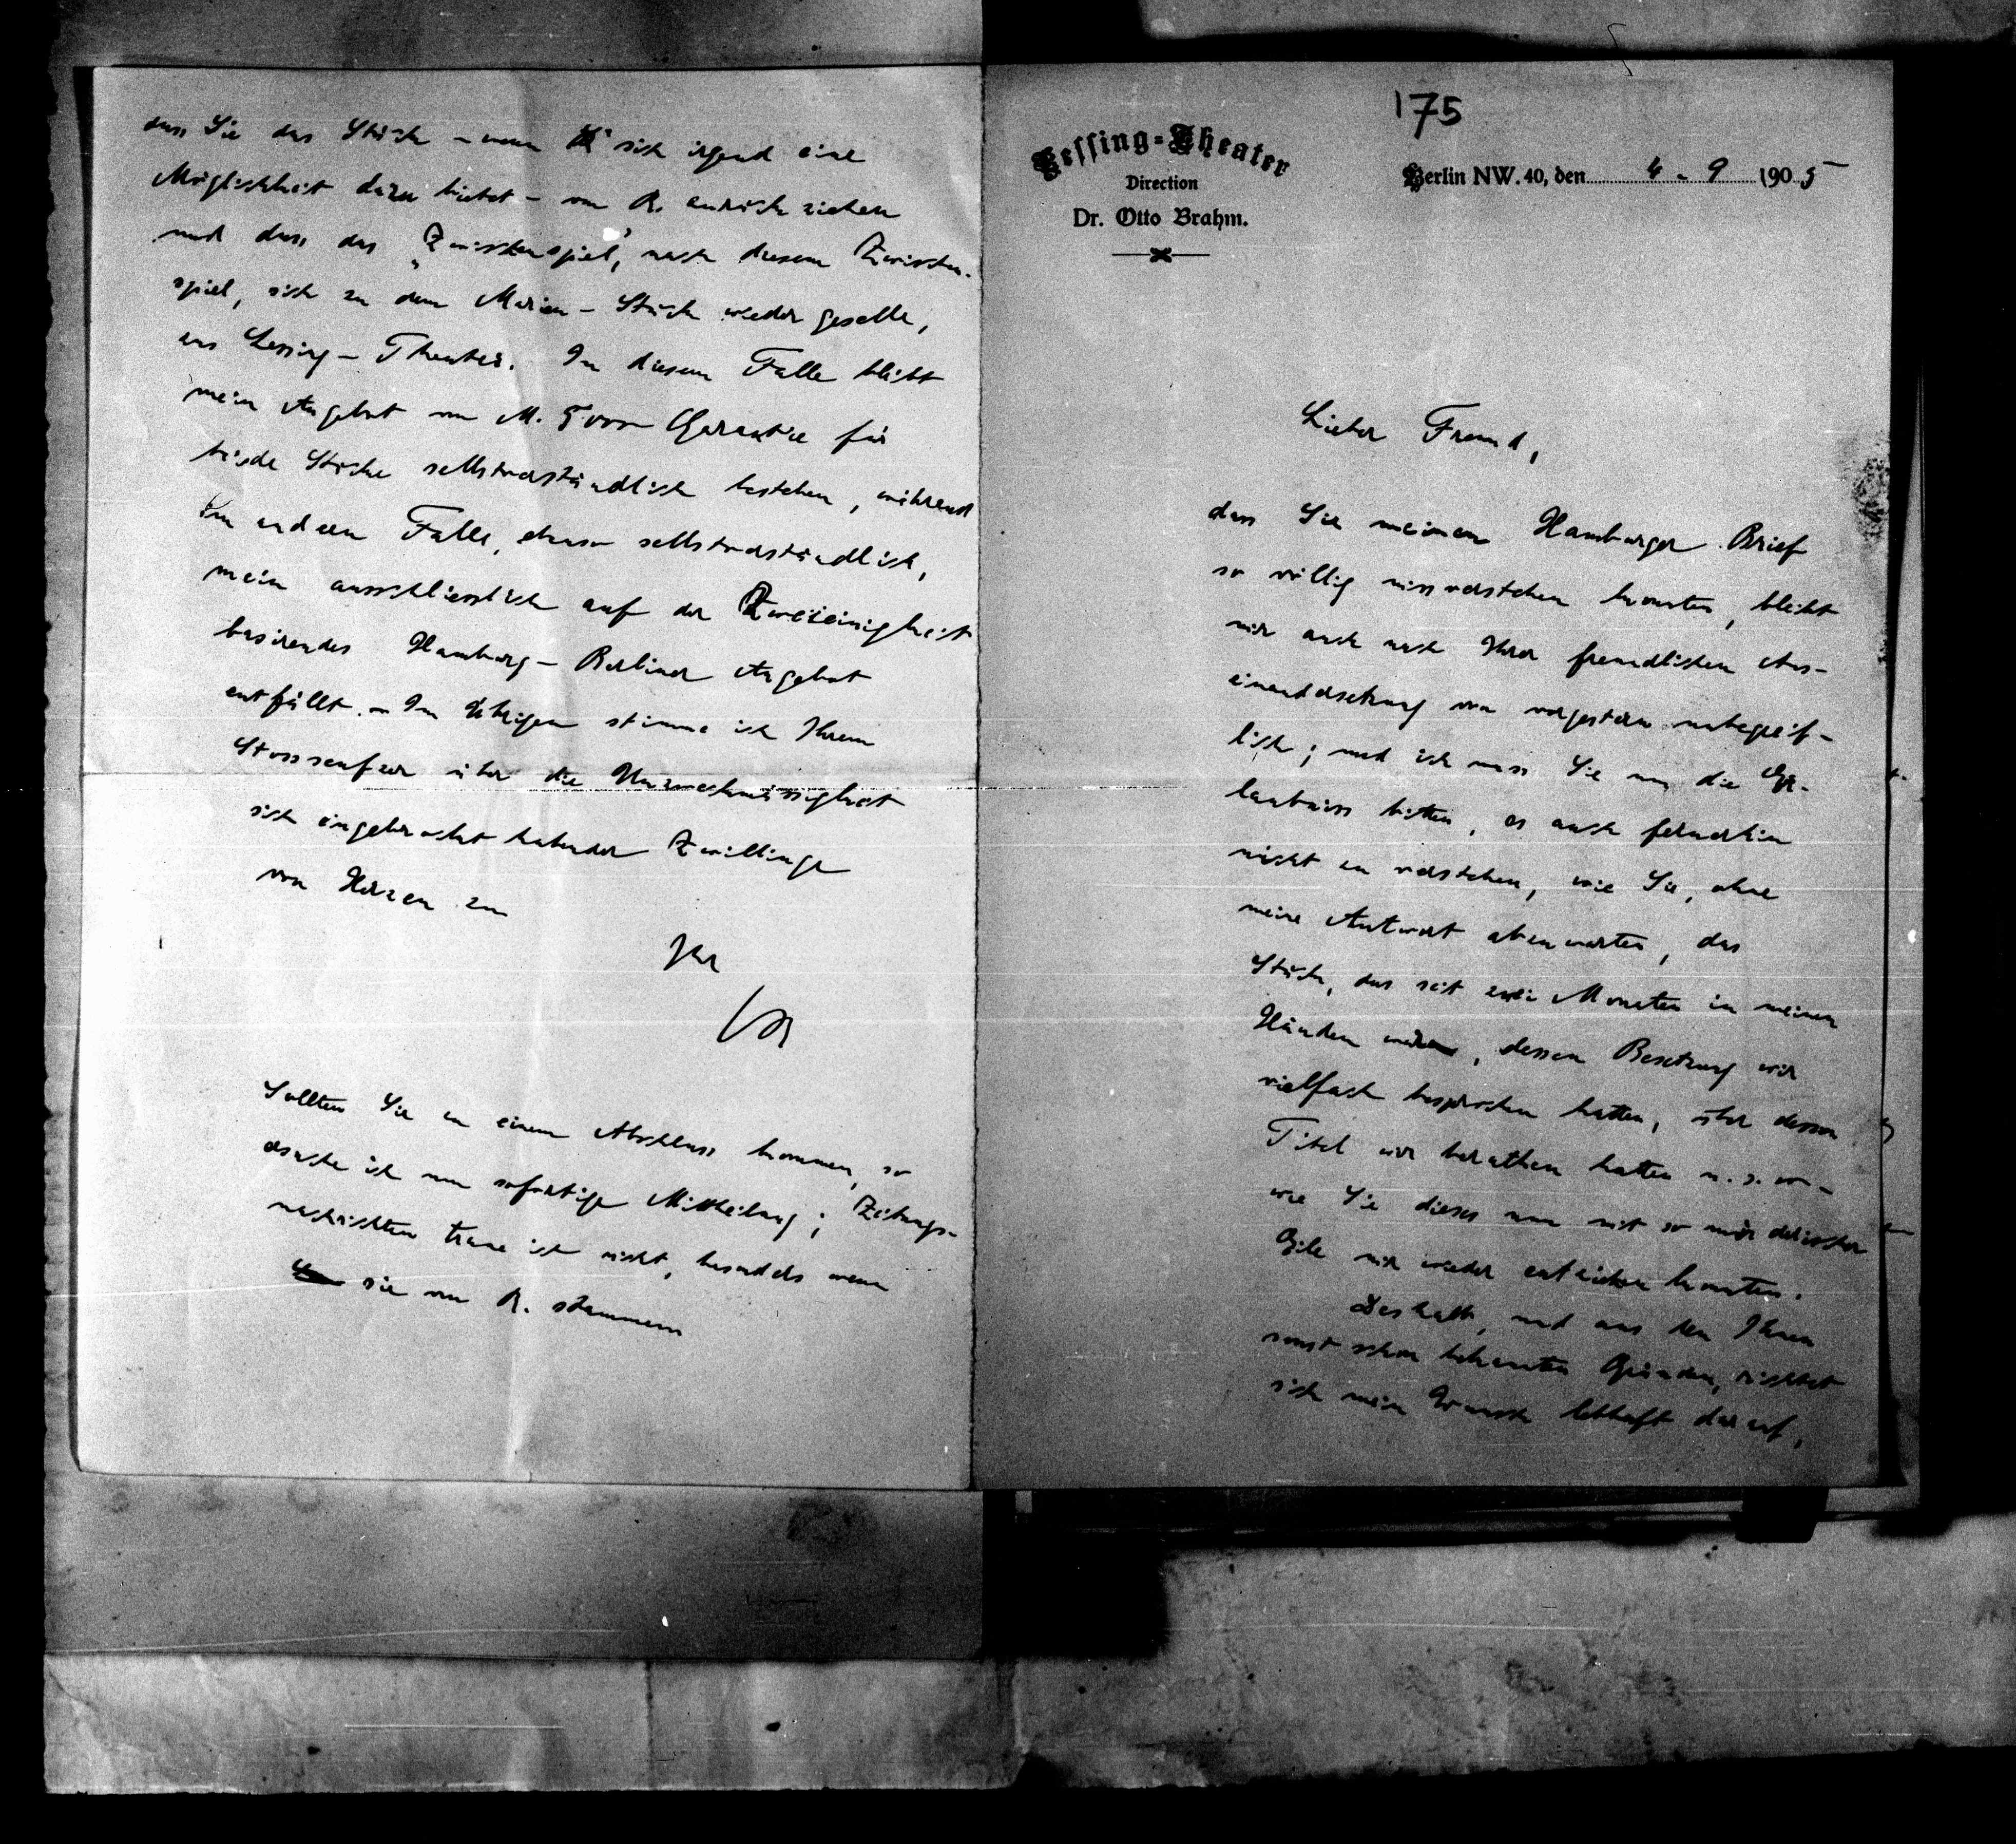 175
Lessing-Theater
Direction
Dr. Otto Brahm.
Berlin NW. 40, den 4. 9 1905
Lieber Freund,
dass Sie meinen Hamburger Brief
so völlig missverstehen konnten, bleibt
mir auch nach Ihrer freundlichen Aus-
einandersetzung von vorgestern unbegreif-
lich; und ich muss Sie um die Er-
laubniss bitten, es auch fernerhin
nicht zu verstehen, wie Sie, ohne
meine Antwort abzuwarten, das
Stück, das seit zwei Monaten in meinen
Händen, dessen Besetzung wir
vielfach besprochen hatten, über dessen
Titel wir berathen hatten u. s. w –
wie Sie dieses nun mit so mörderischer
Eile mir wieder entziehen konnten.
Deshalb, und aus den Ihnen
sonst schon bekannten Gründen, richtet
sich mein Wunsch lebhaft darauf,
dass Sie das Stück – wenn sich irgend eine
Möglichkeit dazu bietet – von R. zurückziehen
und dass das „Zwischenspiel“, nach diesem Zwischen-
spiel, sich zu dem Marien-Stück wieder geselle,
ins Lessing-Theater. In diesem Falle bleibt
mein Angebot von M. 5000 Garantie für
beide Stücke selbstverständlich bestehen, während
im andern Falle, ebenso selbstverständlich,
mein ausschliesslich auf der Zweieinigkeit
basirendes Hamburg-Berliner Angebot
entfällt. – Im Übrigen stimme ich Ihrem
Stossseufzer über die Unzweckmässigkeit
sich eingebracht habender Zwillinge
von Herzen zu
Ihr
OB
Sollten Sie zu einem Abschluss kommen, so
ersuche ich um sofortige Mittheilung; Zeitungs-
nachrichten traue ich nicht, besonders wenn
sie von R. stammen